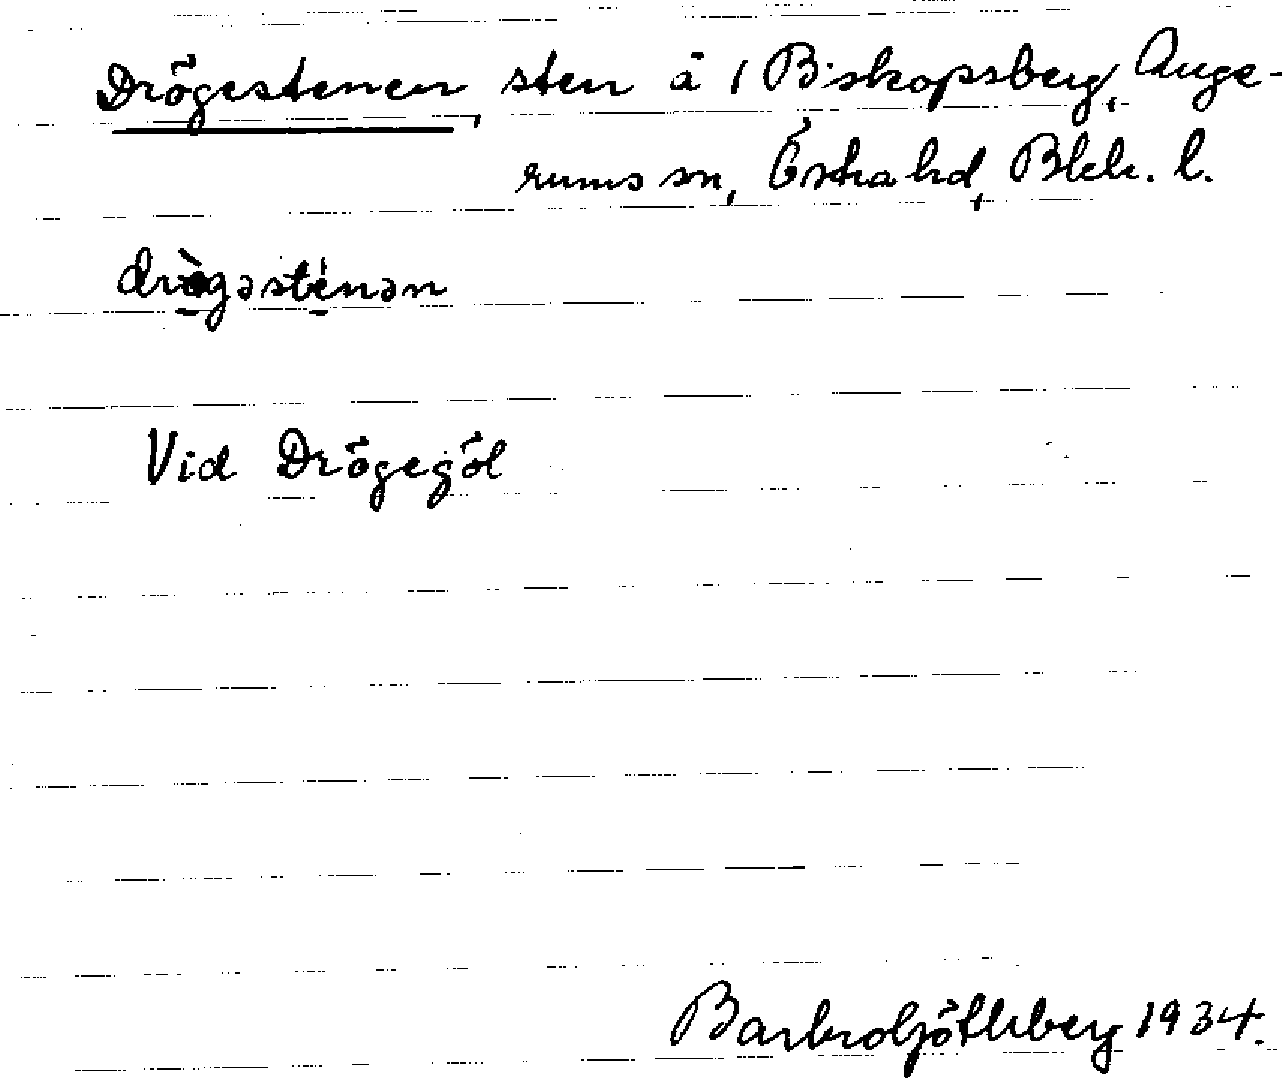 Drögestenen, sten å 1 Biskopsberg, Auge-
rums sn, Östra hd, Blek. l.
drògəsténən
Vid Drögegöl
Barbro Götlberg 1934.